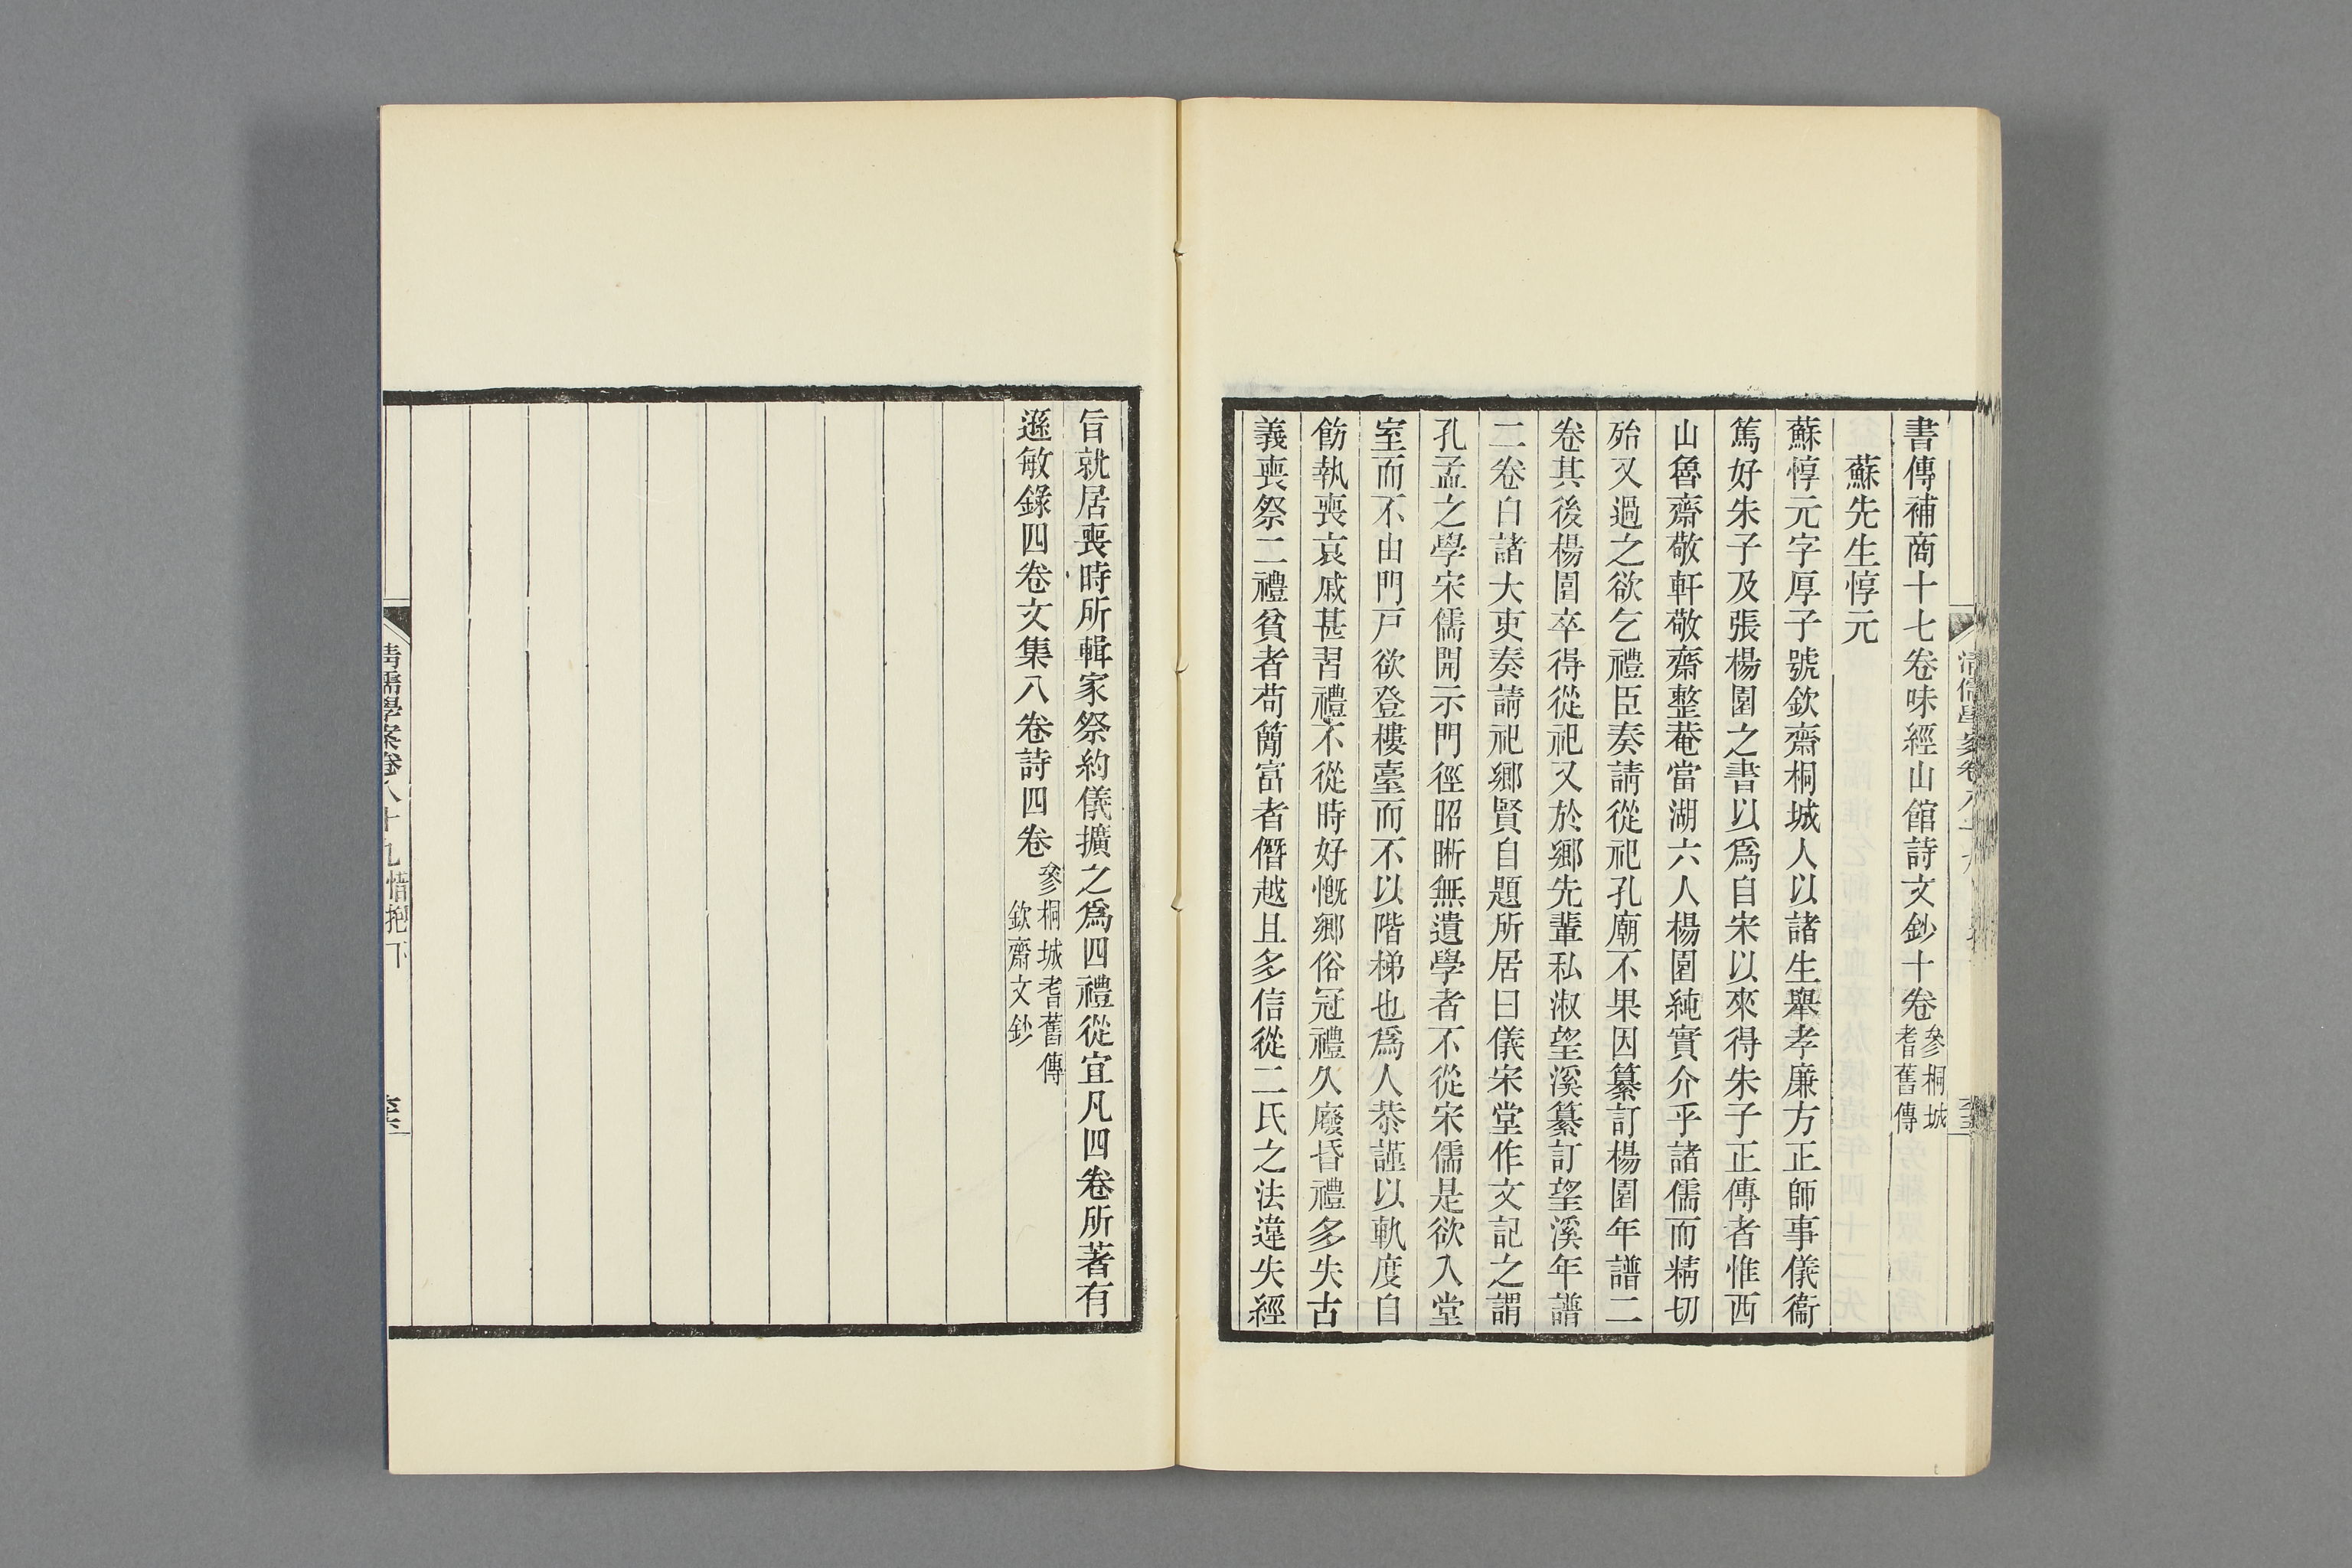 書傳補商十七卷味經山館詩文鈔十卷參桐城耆舊傳
蘇先生惇元
蘇惇元字厚子號欽齋桐城人以諸生舉孝廉方正師事儀衞
篤好朱子及張楊園之書以爲自宋以來得朱子正傳者惟西
山魯齋敬軒敬齋整菴當湖六人楊園純實介乎諸儒而精切
殆又過之欲乞禮臣奏請從祀孔廟不果因纂訂楊園年譜二
卷其後楊園卒得從祀又於鄉先輩私淑望溪纂訂望溪年譜
二卷白諸大吏奏請祀鄉賢自題所居曰儀宋堂作文記之謂
孔孟之學宋儒開示門徑昭晰無遺學者不從宋儒是欲入堂
室而不由門戸欲登樓臺而不以階梯也爲人恭謹以軌度自
飭執喪哀戚甚習禮不從時好慨鄉俗冠禮久廢昏禮多失古
義喪祭二禮貧者苟簡富者僭越且多信從二氏之法違失經
旨就居喪時所輯家祭約儀擴之爲四禮從宜凡四卷所著有
遜敏錄四卷文集八卷詩四卷參桐城耆舊傳欽齋文鈔
清儒學案卷八十九惜抱下